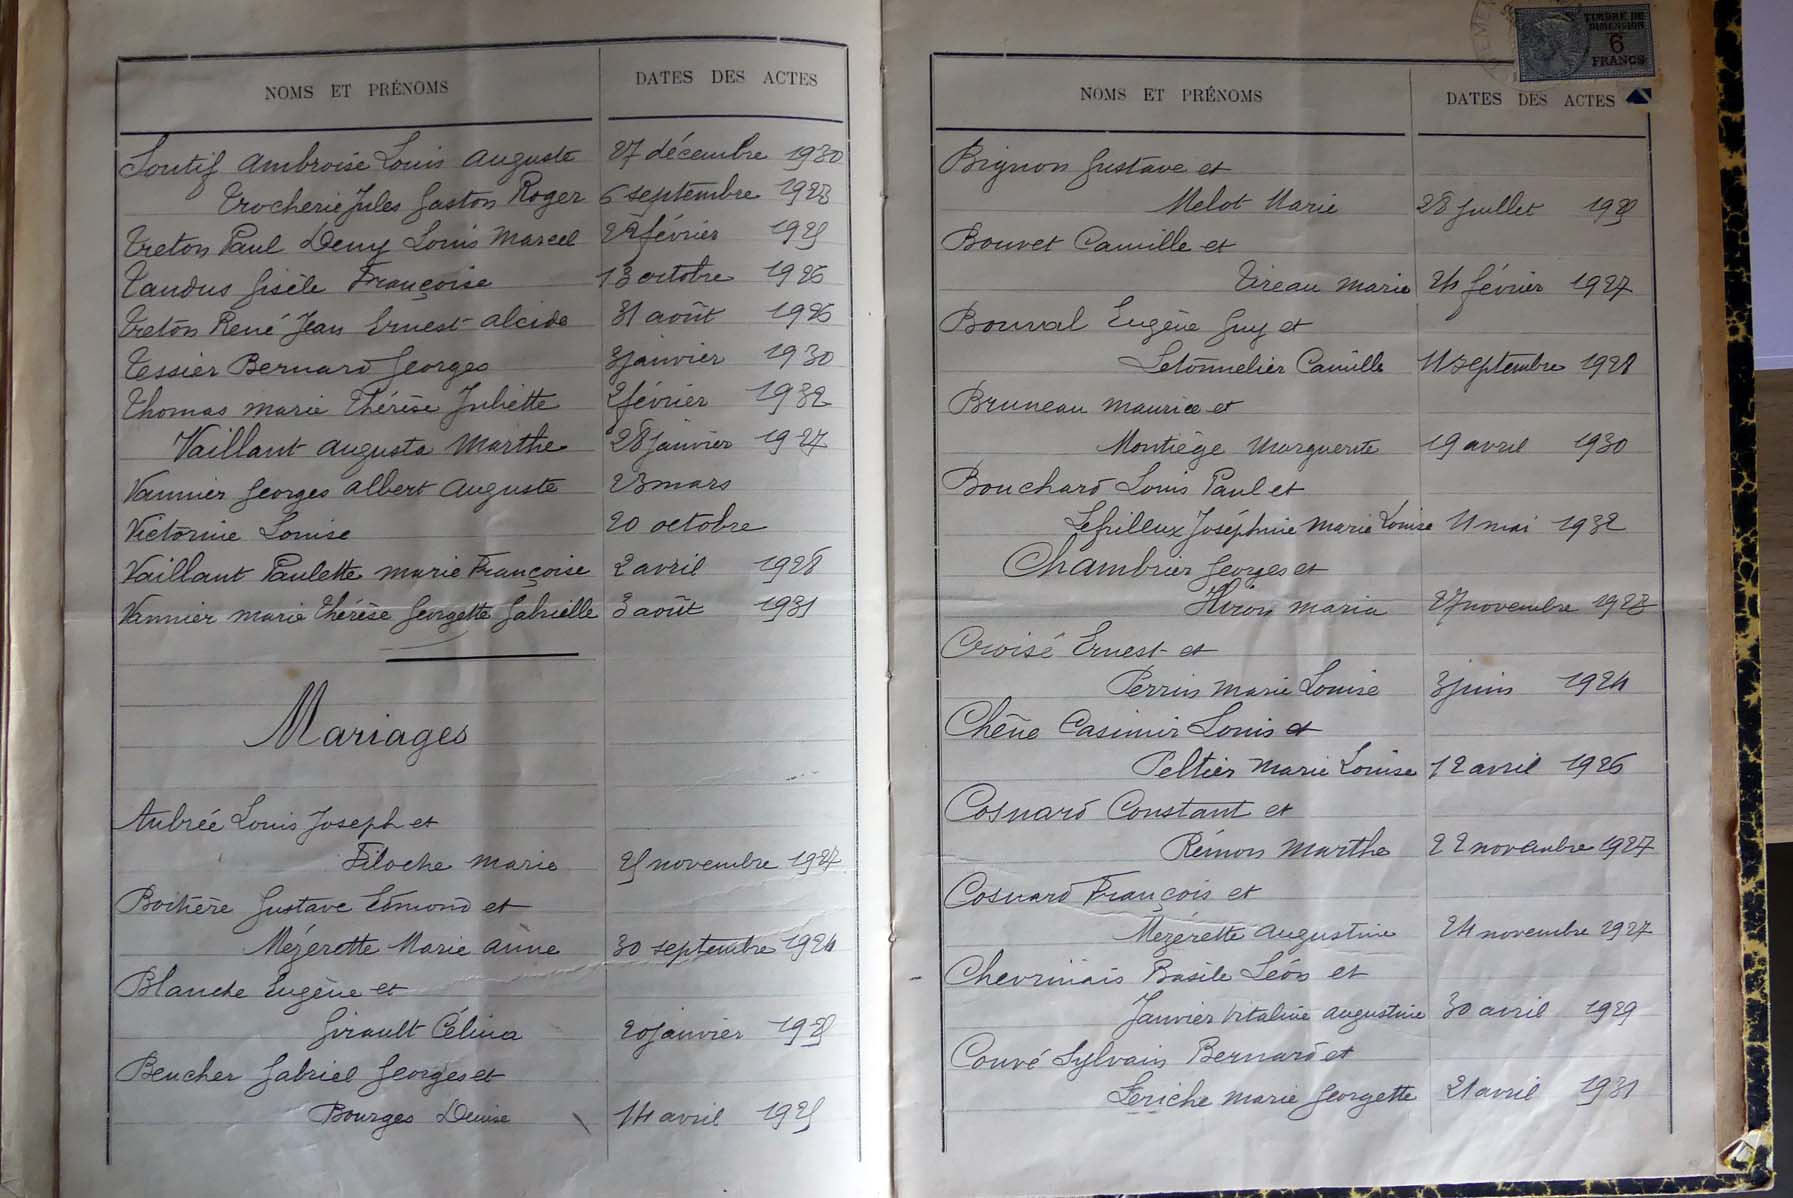 NOMS ET PRÉNOMS DATES DES ACTES
Soutif Ambroise Louis Auguste 27 décembre 1930
Trocherie Jules Gaston Roger 6 septembre 1923
Treton Paul Deny Louis Marcel 22 février 1925
Tandus Gisèle Françoise 13 octobre 1926
Treton René Jean Ernest Alcide 31 août 1926
Tessier Bernard Georges 3 janvier 1930
Thomas Marie Thérèse Juliette 2 février 1932
Vaillant Augusta Marthe 28 janvier 1927
Vannier Georges Albert Auguste 23 mars
Victorine Louise 20 octobre
Vaillant Paulette Marie Françoise 2 avril 1928
Vannier Marie Thérèse Georgette Gabrielle 3 août 1931
Mariages
Aubrée Louis Joseph et
Filoche Marie 25 novembre 1924
Boitière Gustave Edmond et
Mézerette Marie Anne 30 septembre 1924
Blanche Eugène et
Girault Célina 20 janvier 1925
Beucher Gabriel Georges et
Bourges Denise 14 avril 1925
TIMBRE DE
DIMENSION
6
FRANCS
NOMS ET PRÉNOMS DATES DES ACTES
Bignon Gustave et
Melot Marie 28 juillet 1925
Bouvet Camille et
Tireau Marie 24 février 1927
Bouval Eugène Guy et
Letonnelier Camille 11 septembre 1928
Bruneau Maurice et
Montiège Marguerite 19 avril 1930
Bouchard Louis Paul et
Lefrilleux Joséphine Marie Louise 11 mai 1932
Chambrier Georges et
Hiron Maria 27 novembre 1923
Croisé Ernest et
Perrin Marie Louise 3 juin 1924
Chêne Casimir Louis et
Peltier Marie Louise 12 avril 1926
Cosnard Constant et
Rémon Marthe 22 novembre 1927
Cosnard François et
Mézerette Augustine 24 novembre 1927
Chevrinais Basile Léon et
Janvier Vitaline Augustine 30 avril 1929
Couvé Sylvain Bernard et
Leriche Marie Georgette 21 avril 1931